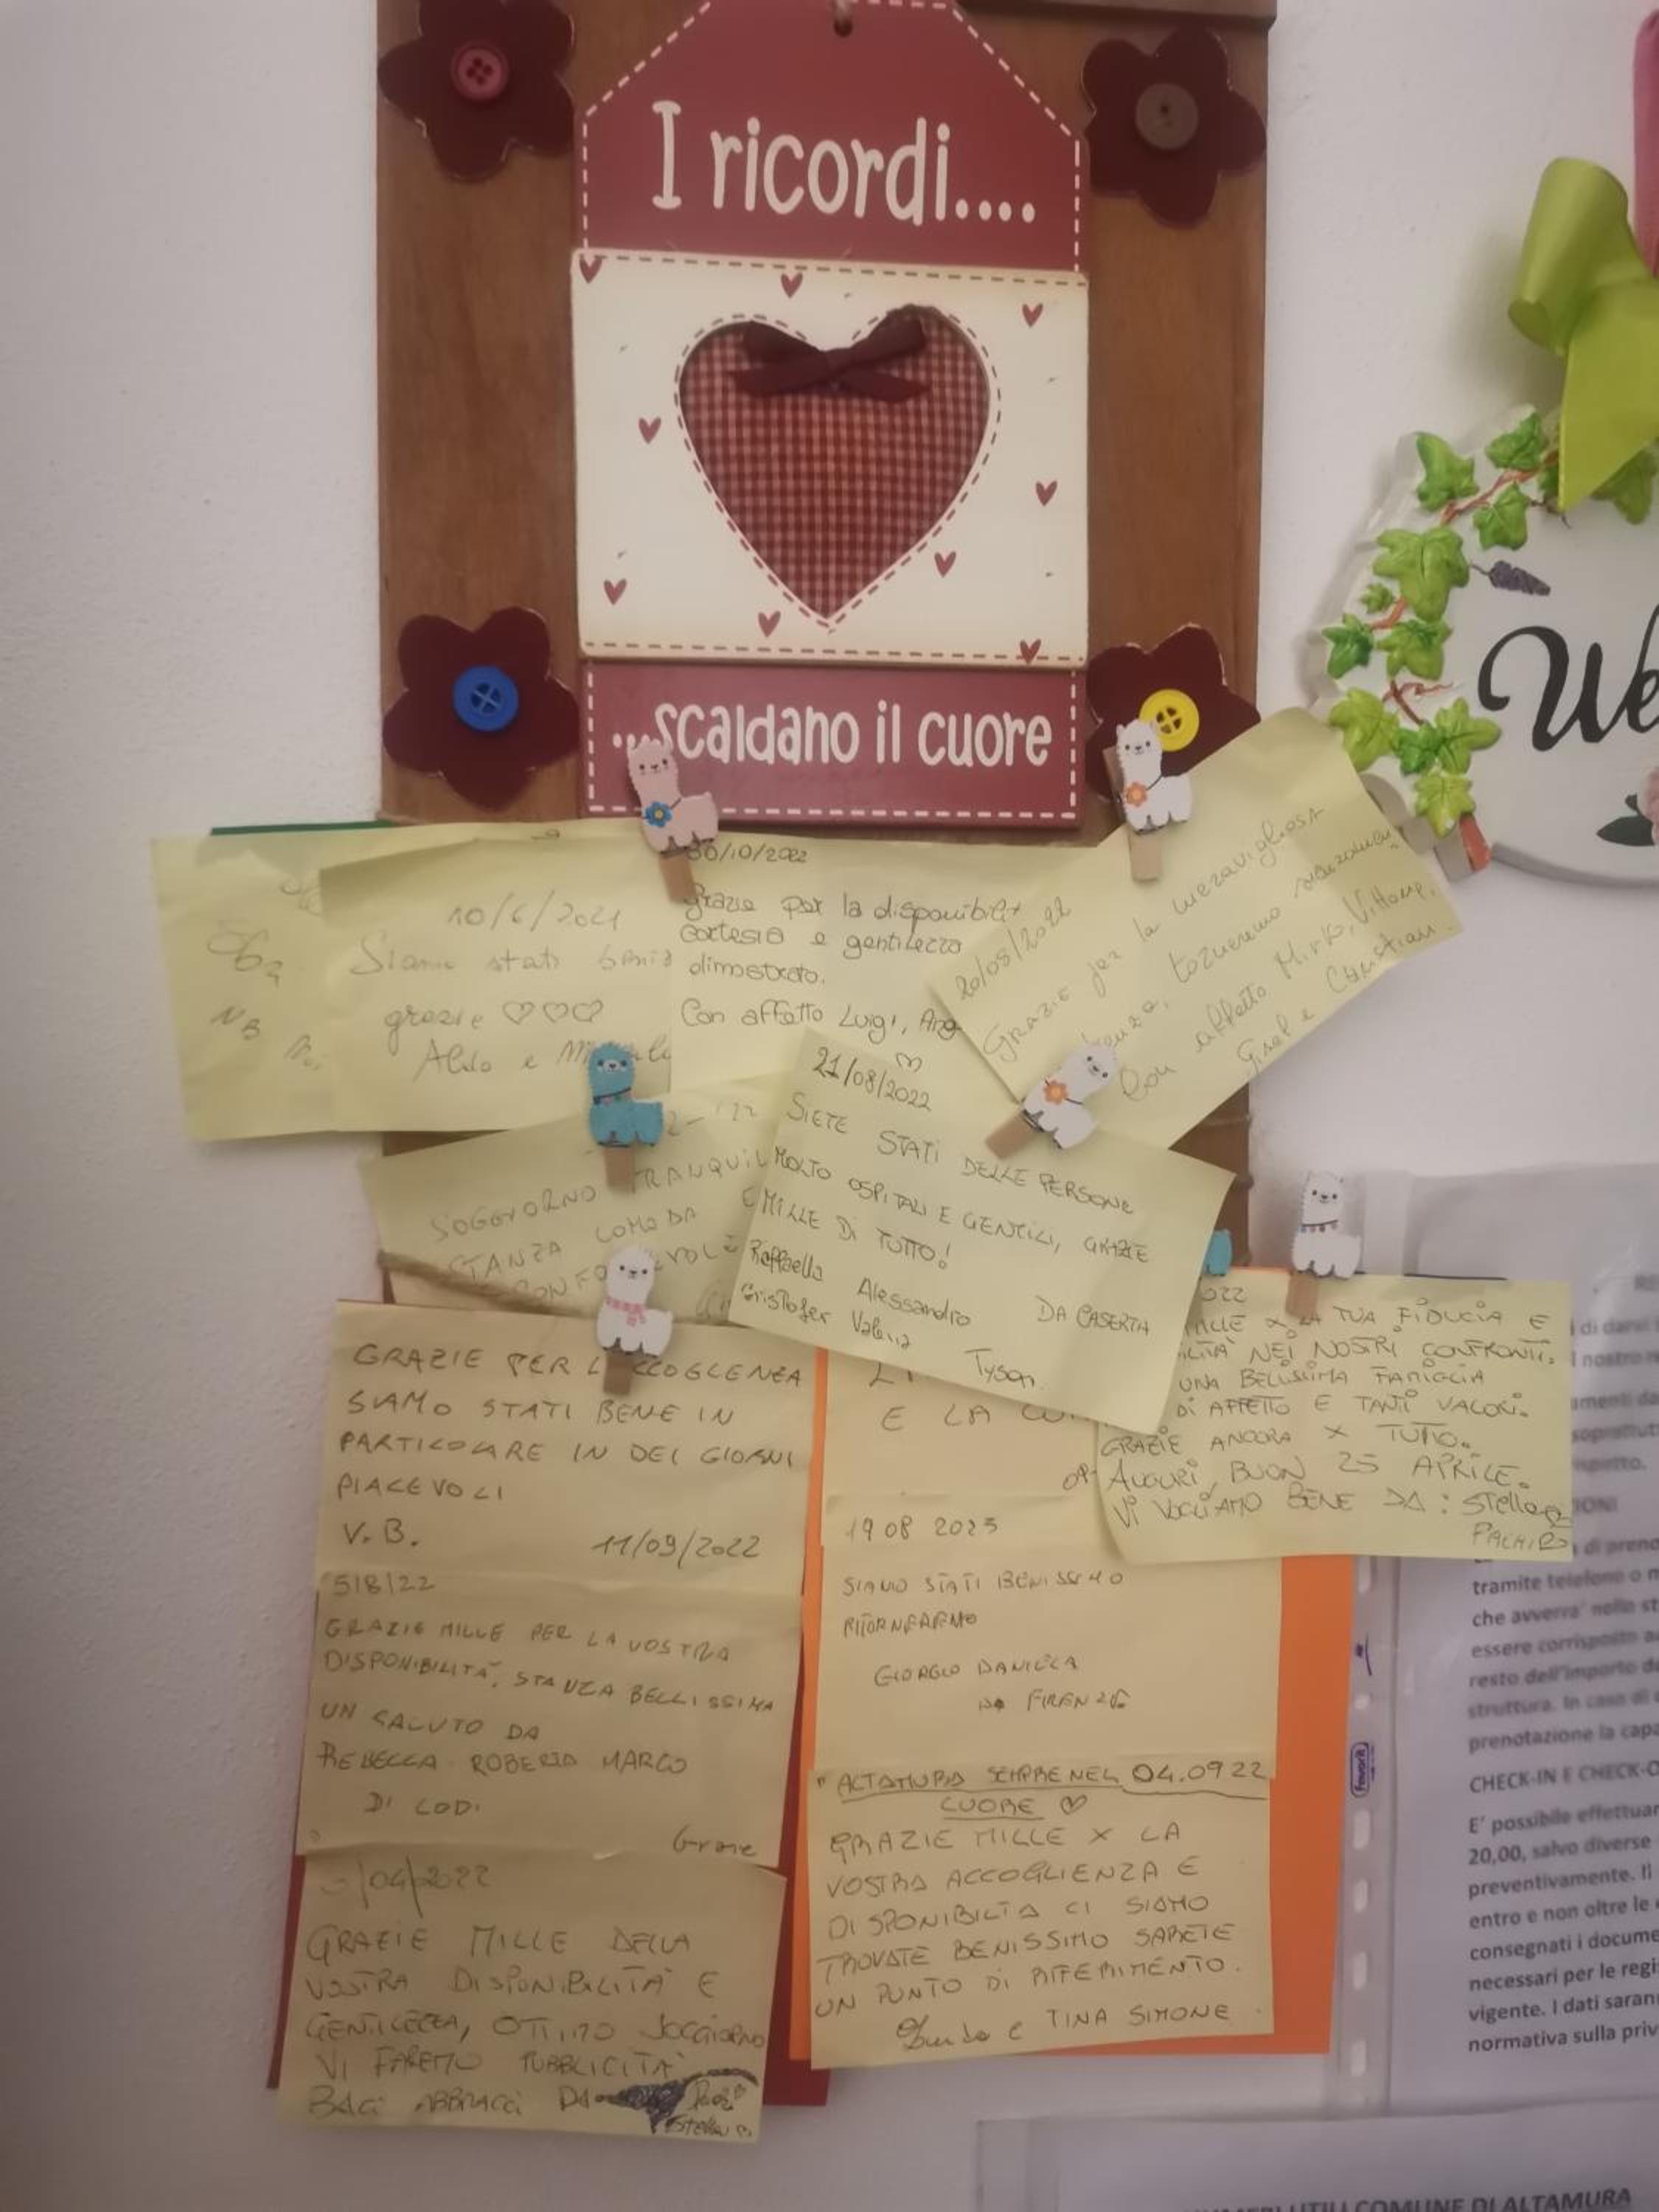 I ricordi....
...scaldano il cuore
We
10/6/2021
Siamo stati
grazie ♡♡♡
Aldo e
30/10/2022
Grazie per la disponibilit
cortesia e gentilezza
dimostrata.
Con affetto Luigi,
20/08/2022
Grazie per la meravigliosa
torneremo
Con affetto Mirko,
Christian.
SOGGIORNO TRANQUIL
STANZA COMODA
21/08/2022
SIETE STATI DELLE PERSONE
MOLTO OSPITALI E GENTILI, GRAZIE
MILLE DI TUTTO!
Raffaella Alessandro DA CASERTA
Cristofer Tyson
022
TUA FIDUCIA E
NEI NOSTRI CONFRONTI.
UNA BELLISSIMA FAMIGLIA
DI AFFETTO E TANTI VALORI.
GRAZIE ANCORA X TUTTO.
AUGURI, BUON 25 APRILE.
VI VOGLIAMO BENE DA: Stella
GRAZIE PER L CCOGLENZA
SIAMO STATI BENE IN
PARTICOLARE IN DEI GIORNI
PIACEVOLI
V.B. 11/09/2022
E LA
5/8/22
GRAZIE MILLE PER LA VOSTRA
DISPONIBILITÀ, STANZA BELLISSIMA
UN SALUTO DA
REBECCA ROBERTA MARCO
DI LODI
Grazie
19 08 2023
SIAMO STATI BENISSIMO
RITORNEREMO
GIORGIO DANIELA
DA FIRENZE
/04/2022
GRAZIE MILLE DELLA
VOSTRA DISPONIBILITÀ E
GENTILEZZA, OTTIMO SOGGIORNO
VI FAREMO PUBBLICITÀ
BACI ABBRACCI DA
Stella
"ALTAMURA SEMPRE NEL 04.09 22
CUORE ♡
GRAZIE MILLE X LA
VOSTRA ACCOGLIENZA E
DISPONIBILTA CI SIAMO
TROVATE BENISSIMO SARETE
UN PUNTO DI RIFERIMENTO.
e TINA SIMONE
di darvi
nostro
IONI
di preno
tramite telefono o
che avverra' nello st
essere corrisposto
resto dell'importo da
struttura. In caso di
prenotazione la capa
CHECK-IN E CHECK-O
E' possibile effettuar
20,00, salvo diverse
preventivamente. Il
entro e non oltre le
consegnati i docume
necessari per le regi
vigente. I dati saran
normativa sulla priv
favorit
COMUNE DI ALTAMURA